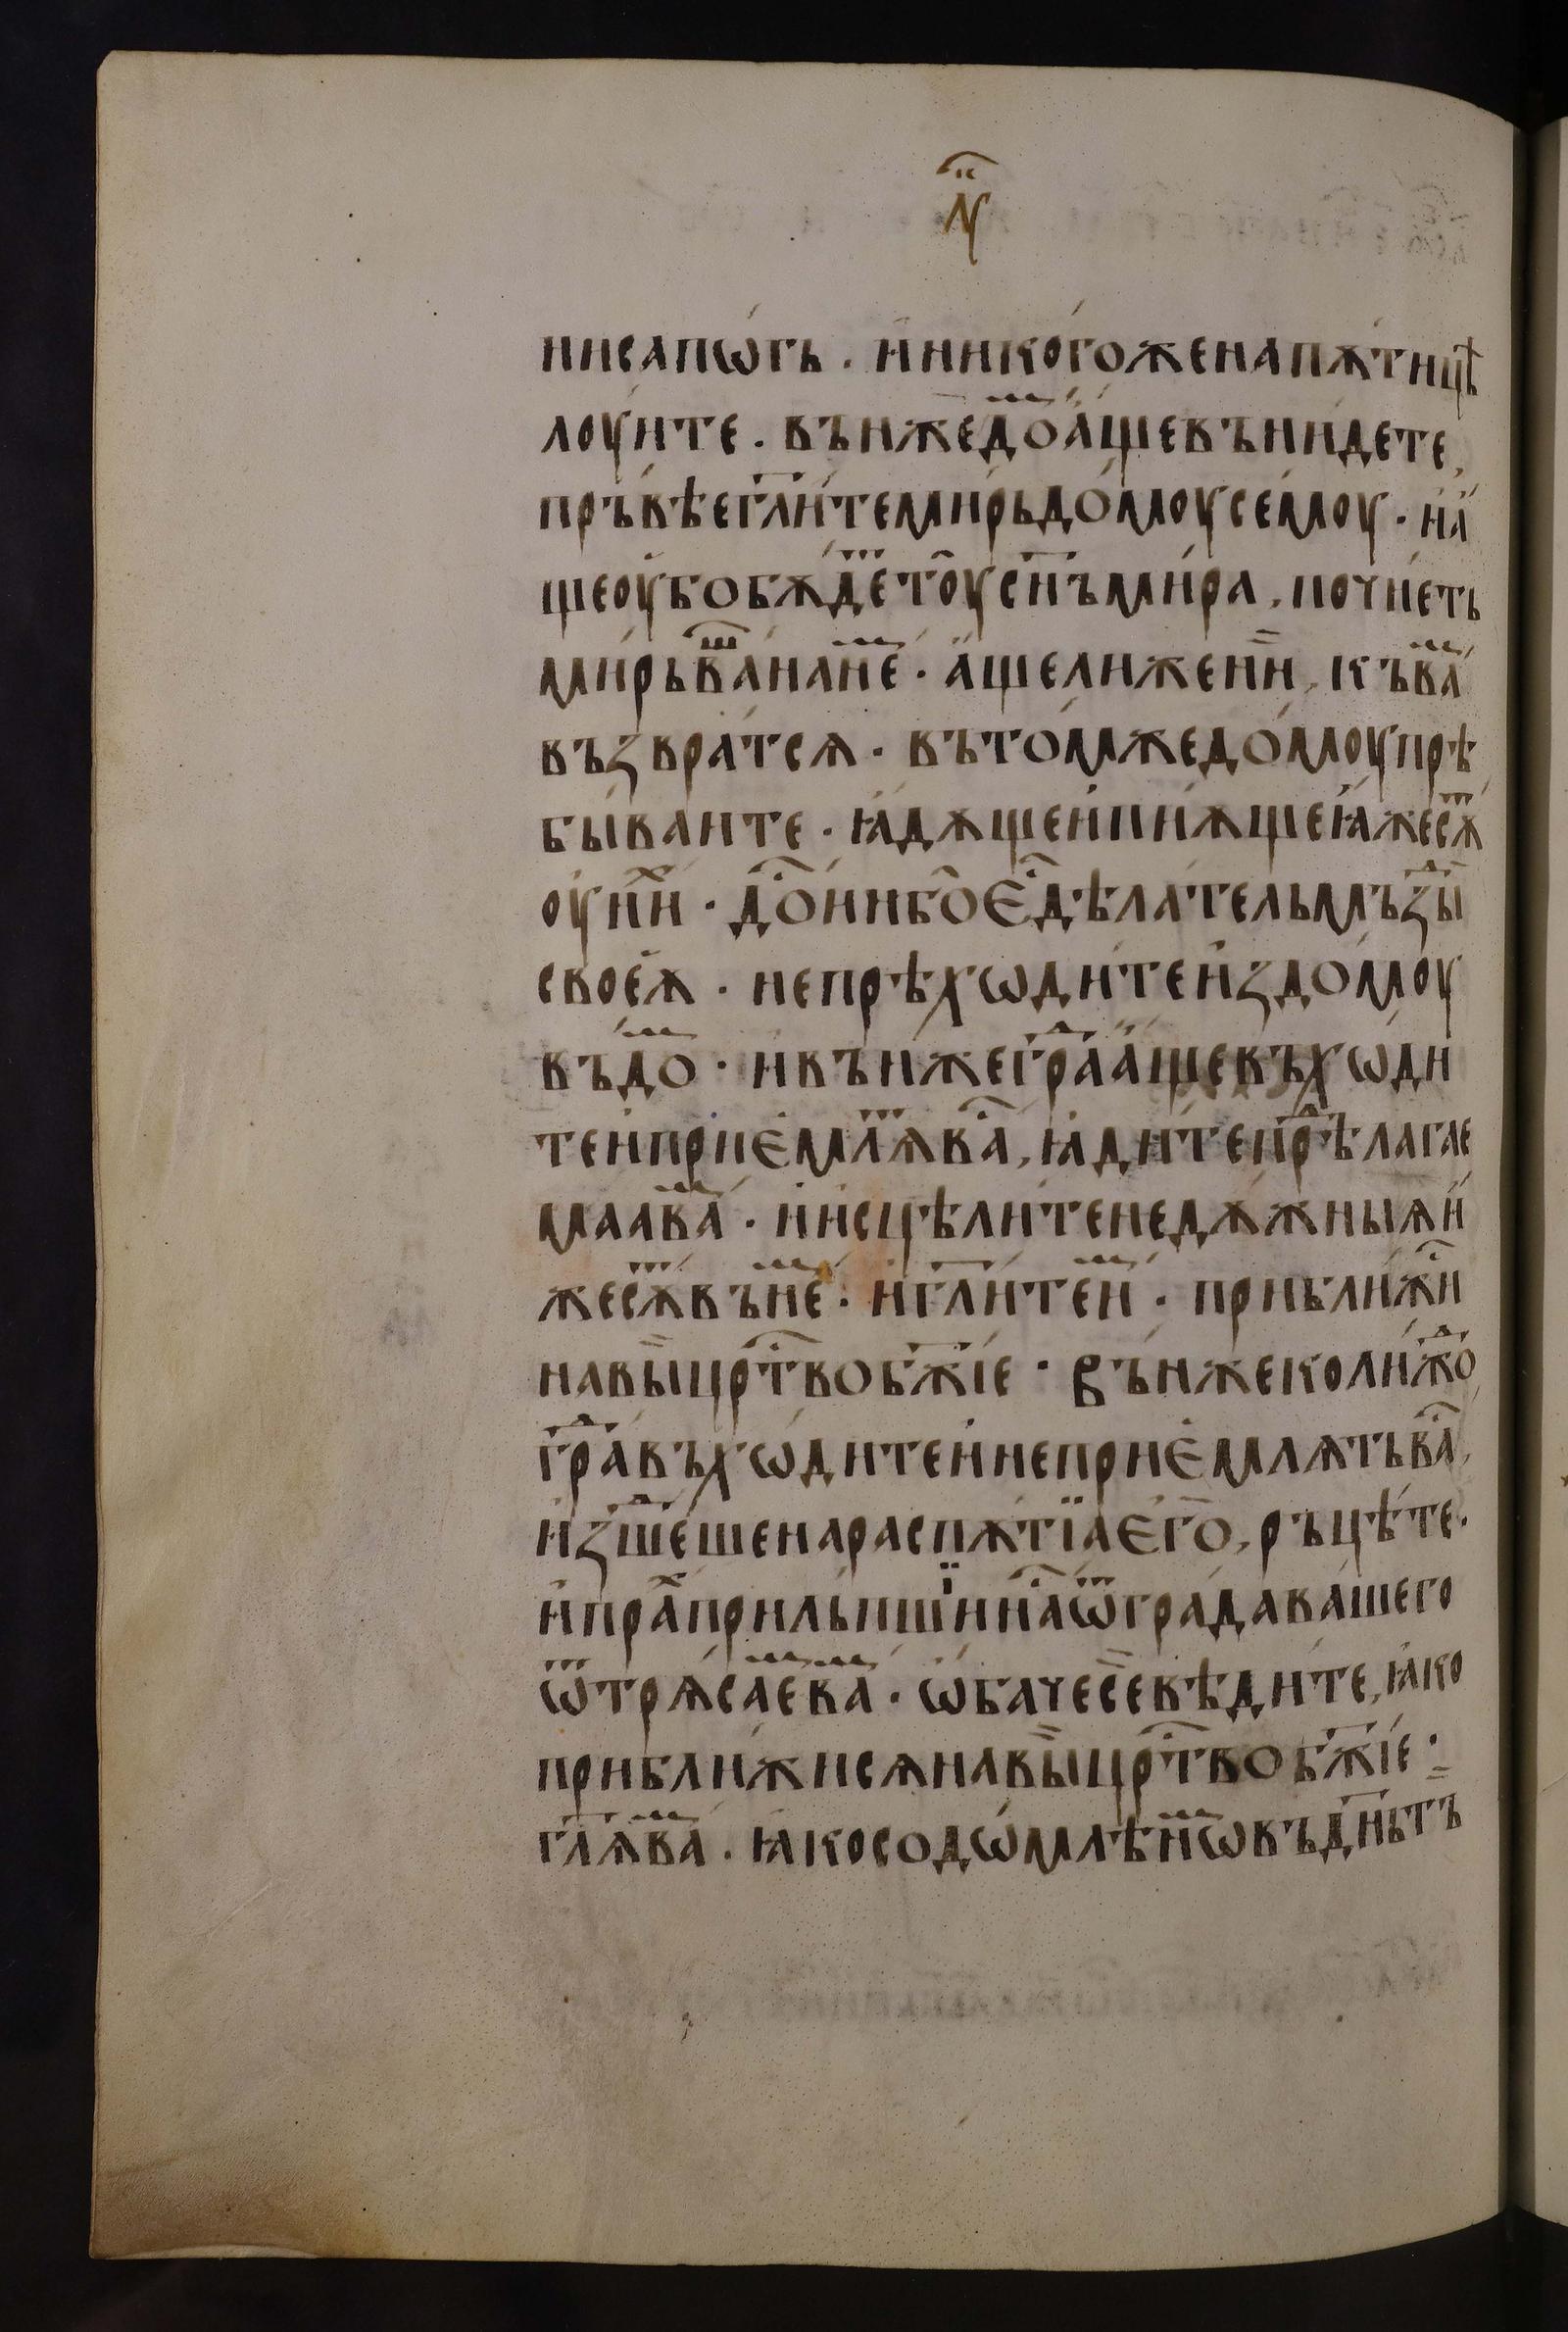 л҃ч
ни сапѡ́гь . и҆ никого́же на пѫ́ти цѣ
лоу́ите . въ ни́жедо́ⷨ а҆́ще вънидете,
пръ́вѣе гл҃и́те ми́рь до́моу се́моу . и҆ а҆́
ще оу҆бо бѫ́деⷮ тоу сн҃ъ ми́ра , почі́еть
ми́рь вашь на не́ⷨ . а҆́ще ли же ни҆̀ , къ ва́ⷨ
възврати́тсѧ . въ то́мже до́моу прѣ
бы́ваите . ꙗ҆дѫ́ще и҆ пиѫ́ще ꙗ҆́же сѫ́ⷮ
оу҆ ни́ⷯ . досто́инь бо є҆ⷭ҇ дѣ́латель мъзды̀
своеѫ̀ . не прѣхѡди́те и҆з до́моу
въ до́ⷨ . и҆ въ ни́же гра́ⷣ а҆́ще въхѡ́ди
те и҆ прие́млѫⷮ ва́ⷭ , ꙗ҆ди́те прѣⷣлагае
маа ва́ⷨ . и҆ и҆сцѣли́те недѫ́жныѧ и҆́
же сѫ́ⷮ въ не́ⷨ . и҆ гл҃и́те и҆́ⷨ . прибли́жи́ⷭ
на вы црⷭ҇тво бж҃їе . Въ ни́же коли́ждо
гра́ⷣ въхѡ́дите и҆ не прие́млѫть ва́ⷭ ,
и҆зше́ⷣше на распѫ́тїа є҆го̀ , ръцѣ́те .
и҆ пра́ⷯ прильпшїи на́ⷭ ѿ гра́да ва́шего
ѿтрѧса́еⷨ ва́ⷨ . ѡ҆баче сѐ вѣ́дите , ꙗ҆́ко
прибли́жи сѧ на вы црⷭ҇тво бж҃їе :
гл҃ѧ̀ ва́ⷨ . ꙗ҆ко содѡ́млѣнѡⷨ въ дн҃ь тъ